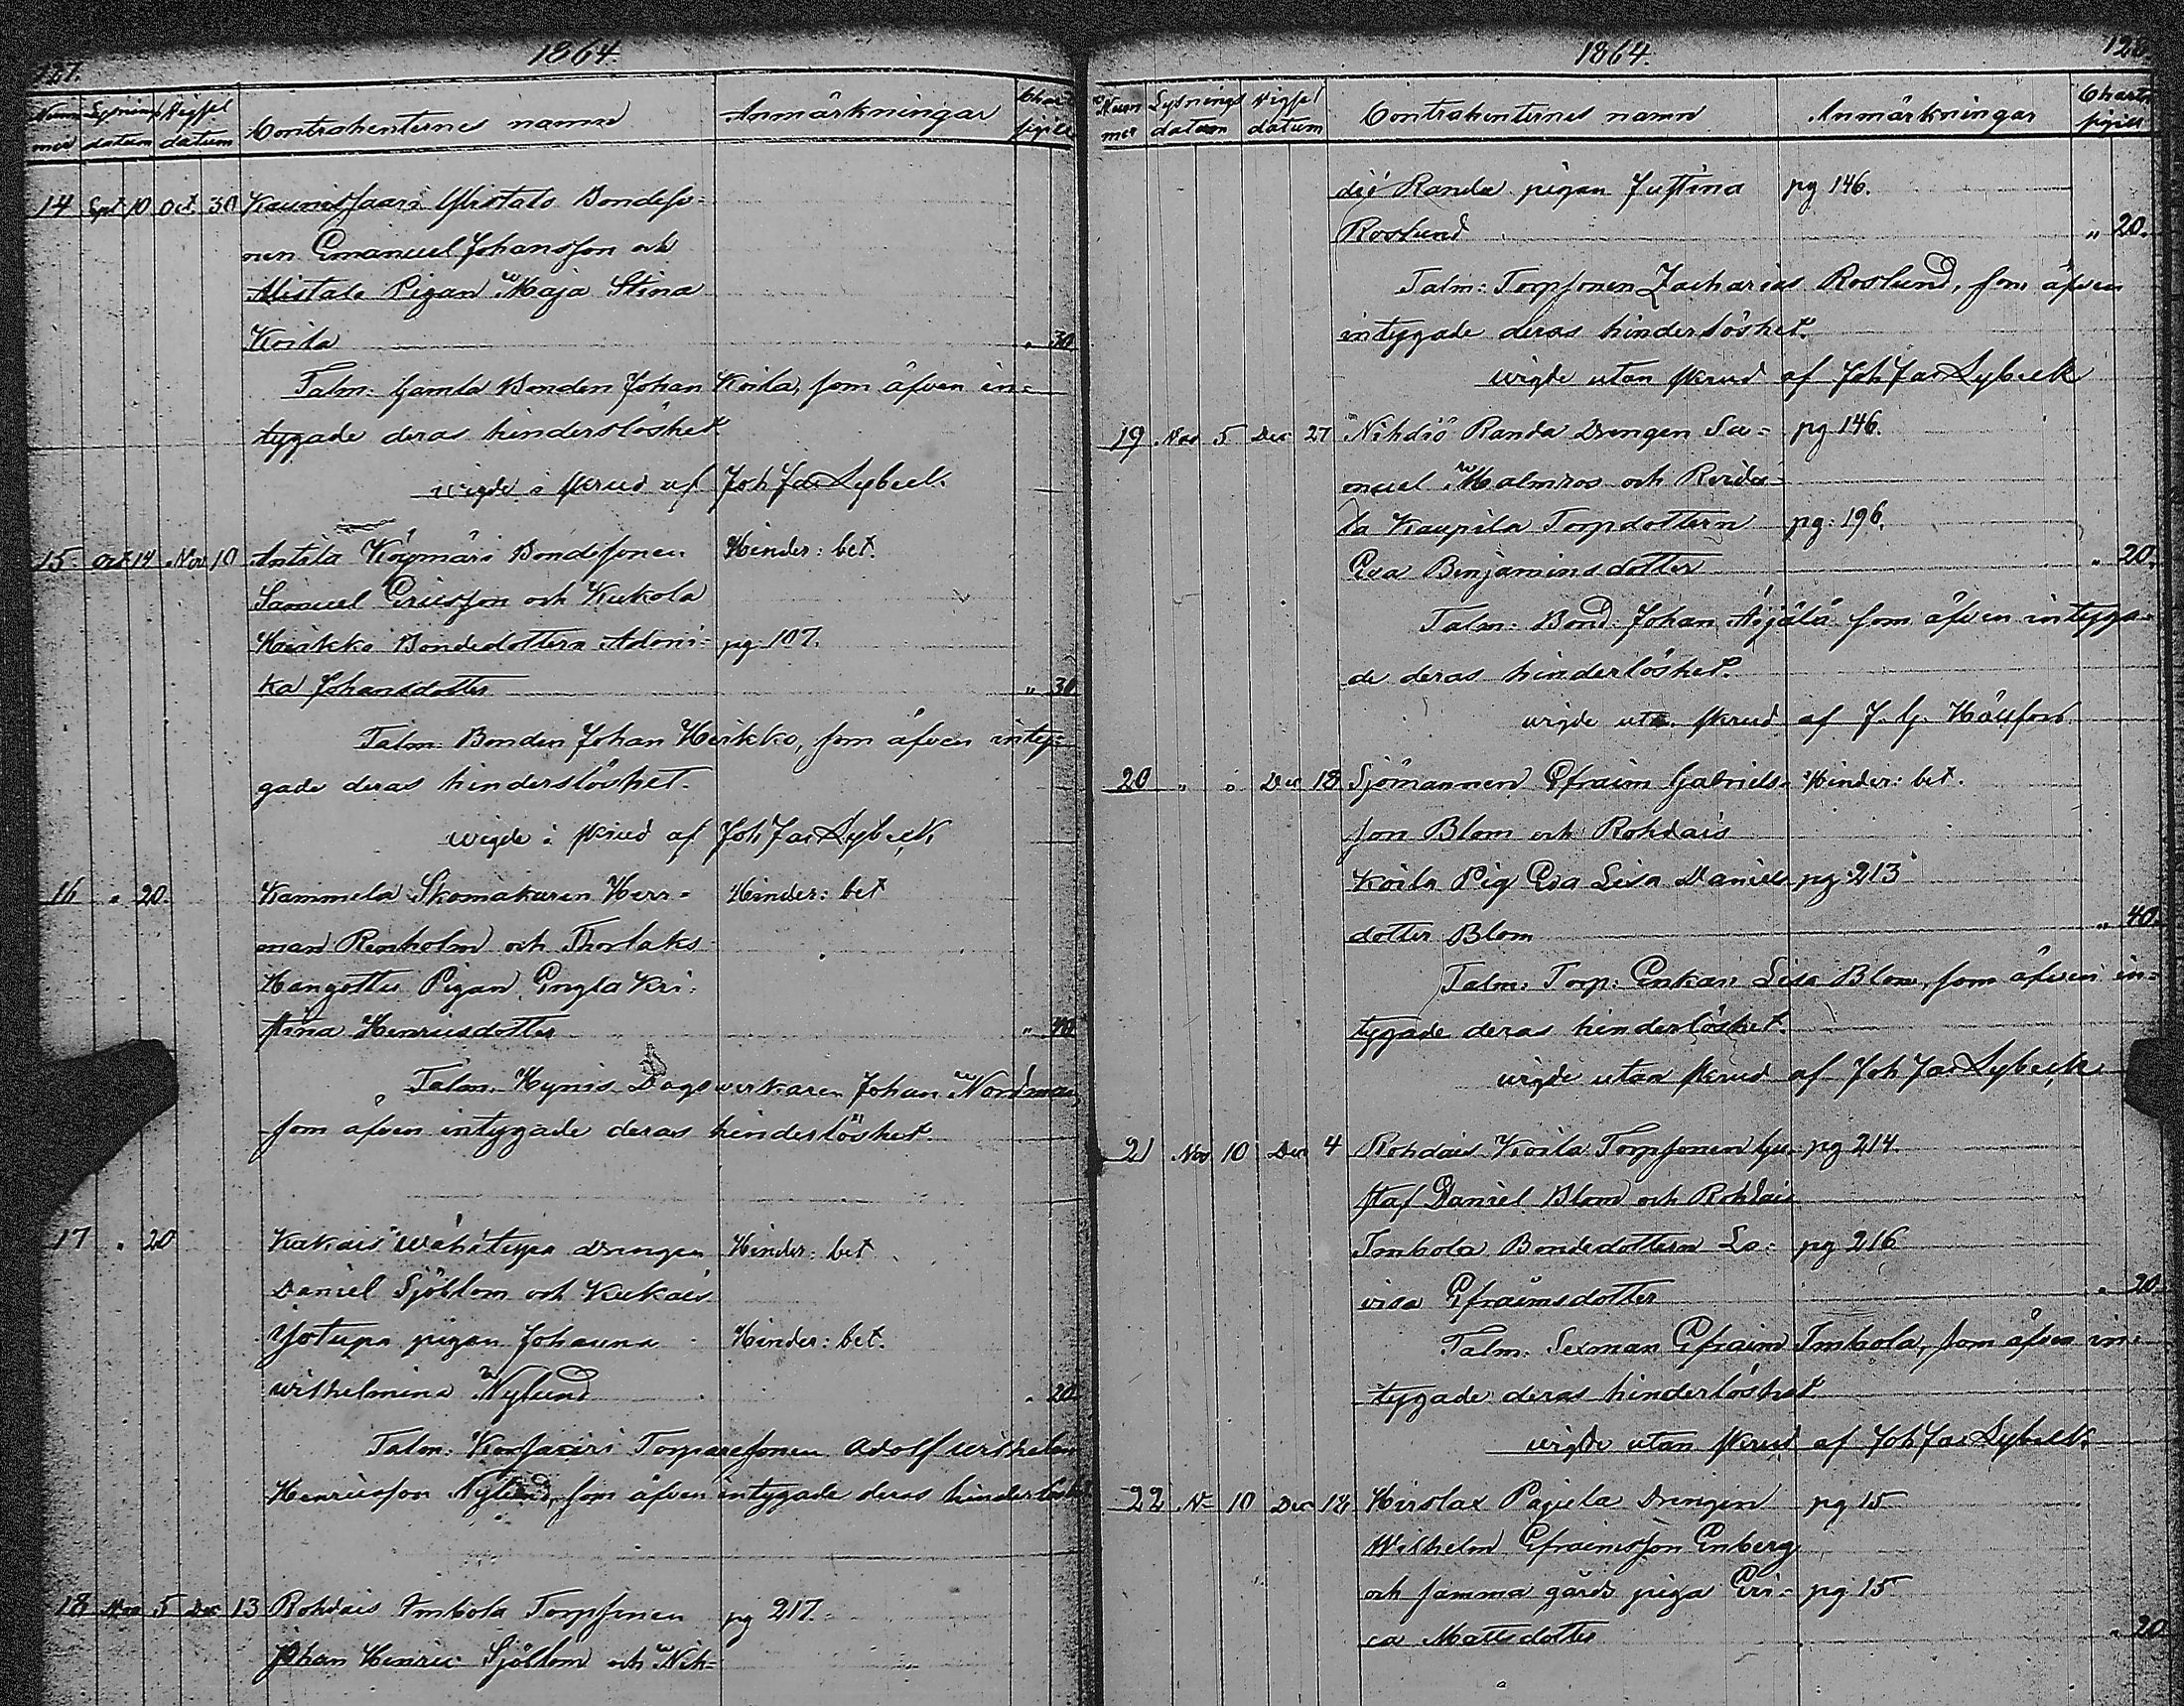 127.
1864.
Nummer Lysnings datum Vigsel datum Contrahenternes namn Anmärkningar Charta sigill
14 Sept 10 Oct 30 Alistalo Bondeso-
nen Emanuel Johansson och
Alistalo Pigan Maja Stina
Koila " 30
Talm: Gamla Bonden Johan Koila, som äfven in-
tygade deras hinderslöshet.
wigde i skrud af Joh Jac Lybeck.
15 Oct 14 Nov 10 Antila Bondesonen Hinder: bet.
Samuel Ericsson och Kukola
Heikko Bondedottern Adoni- pg 107.
ka Johansdotter " 30
Talm. Bonden Johan Heikko, som äfven inty-
gade deras hinderslöshet.
wigde i skrud af Joh Jac Lybeck
16 " 20. Kammela Skomakaren Herr- Hinder: bet
man Renholm och Thorlaks
Hangottu Pigan Engla Kri-
stina Henricsdotter " 40
Talm. Hynis Dagsverkaren Johan Nordman,
som äfven intygade deras hinderlöshet.
17 " 20 Kukais Wähätupa Drengen Hinder: bet
Daniel Sjöblom och Kukais
Yötupa pigan Johanna Hinder: bet.
Wilhelmina Nylund " 20
Talm: Torparesonen Adolf Wilhelm
Henricsson Nylund, som äfven intygade deras hinderlöshet
18 Nov 5 Dec 13 Rohdais Imbola Torpsonen pg 217.
Johan Henric Sjöblom och Nih-
1864.
128
Nummer Lysnings datum Vigsel datum Contrahenternes namn Anmärkningar Charta sigill
diö Randa pigan Justina pg 146.
Roslund " 20.
Talm: Torpsonen Zacharias Roslund, som äfven
intygade deras hinderlöshet.
wigde utan skrud af Joh Jac Lybeck
19 Nov 5 Dec 27 Nihdiö Randa Drengen Sa- pg 146.
muel Malmros och Reida-
la Kaupila Torpdottern pg: 196.
Eva Benjaminsdotter " 20.
Talm: Bond: Johan Äijälä som äfven intyga-
de deras hinderlöshet.
wigde utan skrud af J. G. Hällfors.
20 " " Dec 18 Sjömannen Efraim Gabriels- Hinder: bet.
son Blom och Rohdais
Koila Pig Eva Lisa Daniels- pg 213
dotter Blom " 40.
Talm: Torp: Enkan Lisa Blom, som äfven in-
tygade deras hinderlöshet.
wigde utan skrud af Joh Jac Lybeck
21 Nov 10 Dec 4 Rohdais Koila Torpsonen Gu- pg 214.
staf Daniel Blom och Rohdais
Imbola Bondedottern Lo- pg 216
visa Efraimsdotter " 20
Talm: Sexman Efraim Imbola, som äfven in-
tygade deras hinderlöshet
wigde utan skrud af Joh Jac Lybeck.
22 N- 10 Dec 18 Hirslax Pajula Drengen pg 15
Wilhelm Efraimsson Enberg
och samma gårds piga Eri- pg 15
ca Mattsdotter " 20